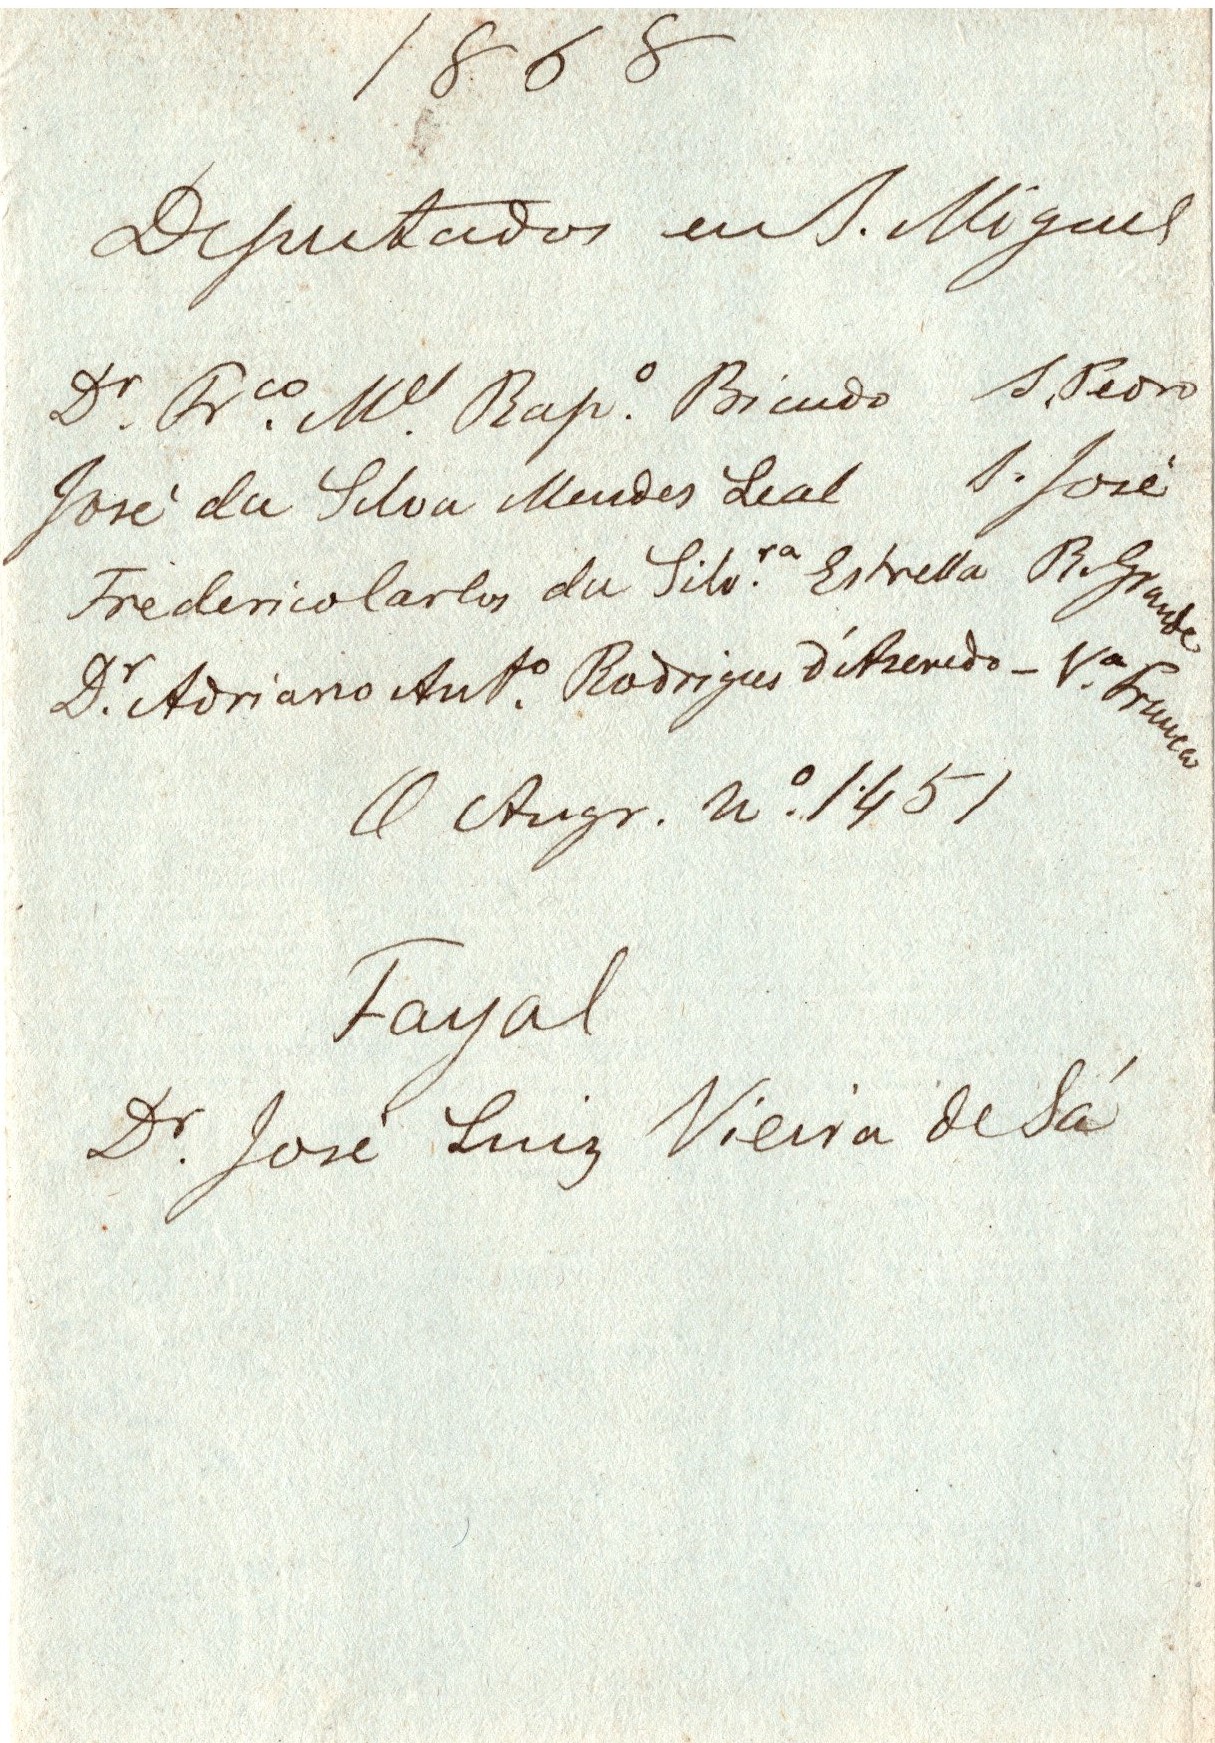 1868
Deputados em S. Miguel
Dr. Frco. Mel. Rapo. Bicudo S. Pedro
José da Silva Mendes Leal S. José
Frederico Carlos da Silvra. Estrella R. Grande
Dr. Adriano Anto. Rodrigues d'Azevedo - Va. Franca
O Angr. No. 1451
Fayal
Dr. José Luiz Vieira de Sá